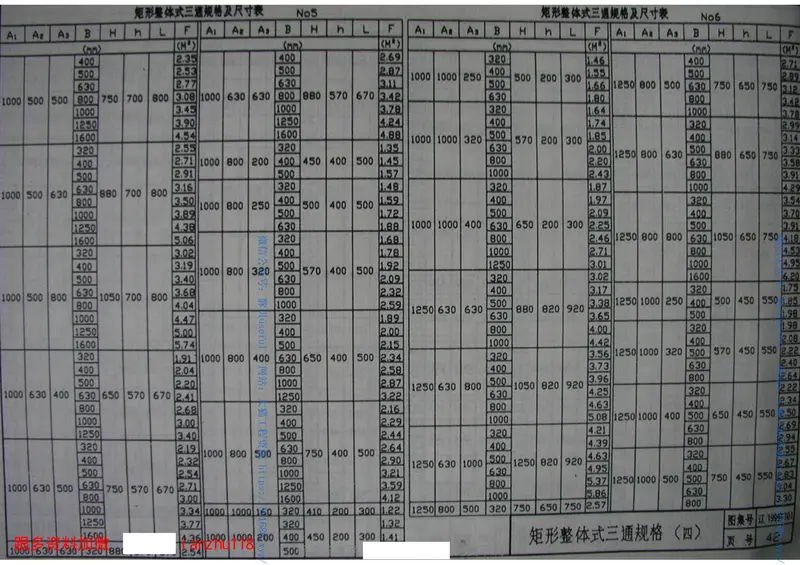 矩形整体式三通规格及尺寸表 No5
A₁ A₂ A₃ B H h L F
(mm) (M²)
400 2.35
500 2.53
630 2.77
1000 500 500 800 750 700 800 3.08
1000 3.45
1250 3.90
1600 4.54
320 2.55
400 2.71
500 2.91
1000 500 630 630 880 700 800 3.16
800 3.50
1000 3.89
1250 4.38
1600 5.06
320 3.02
400 3.19
500 3.40
1000 500 800 630 1050 700 800 3.68
800 4.04
1000 4.47
1250 5.00
1600 5.74
320 1.91
400 2.04
500 2.20
1000 630 400 630 650 570 670 2.41
800 2.68
1000 3.00
1250 3.40
320 2.19
400 2.32
500 2.54
1000 630 500 630 750 570 670 2.71
800 3.00
1000 3.34
1250 3.77
1600 4.36
1000 630 630 320 2.54
A₁ A₂ A₃ B H h L F
(mm) (M²)
400 2.69
500 2.87
630 3.11
1000 630 630 800 880 570 670 3.42
1000 3.78
1250 4.24
1600 4.88
320 1.35
1000 800 200 400 450 400 500 1.45
500 1.57
320 1.48
400 1.59
1000 800 250 500 500 400 500 1.72
630 1.88
320 1.68
400 1.78
1000 800 320 500 570 400 500 1.92
630 2.09
800 2.32
1000 2.59
320 1.89
400 2.00
500 2.15
1000 800 400 630 650 400 500 2.34
800 2.58
1000 2.87
1250 3.22
320 2.16
400 2.29
500 2.44
1000 800 500 630 750 400 500 2.64
800 2.90
1000 3.21
1250 3.59
1600 4.12
1000 1000 160 320 410 200 300 1.22
320 1.32
1000 1000 200 400 450 200 300 1.41
500
矩形整体式三通规格及尺寸表 No6
A₁ A₂ A₃ B H h L F
(mm) (M²)
320 1.46
400 1.55
1000 1000 250 500 500 200 300
630 1.66
800 1.80
320 1.64
400 1.74
500 1.85
1000 1000 320 630 570 200 300 2.00
800 2.20
1000 2.43
320 1.87
400 1.97
500 2.09
1000 1000 400 630 650 200 300 2.25
800 2.46
1000 2.71
1250 3.01
320 3.02
400 3.17
1250 630 630 500 880 820 920 3.38
630 3.65
800 4.00
1000 4.42
320 3.56
400 3.73
500 3.96
1250 630 800 630 1050 820 920 4.25
800 4.63
1000 5.08
320 4.21
400 4.39
500 4.63
1250 630 1000 630 1250 820 920 4.95
800 5.37
1000 5.86
1250 800 500 320 750 650 750 2.57
A₁ A₂ A₃ B H h L F
(mm) (M²)
400 2.71
500 2.89
1250 800 500 630 750 650 750 3.12
800 3.42
1000 3.78
320 2.99
400 3.14
1250 800 630 500 880 650 750 3.33
630 3.58
800 3.91
1000 4.29
320 3.54
400 3.70
500 3.91
1250 800 800 630 1050 650 750 4.18
800 4.53
1000 4.95
320 1.75
1250 1000 250 400 500 450 550 1.85
500 1.98
320 1.98
400 2.08
1250 1000 320 500 570 450 550 2.22
630 2.40
800 2.64
320 2.22
400 2.34
1250 1000 400 500 650 450 550 2.50
630 2.69
800 2.94
320 2.55
400 2.67
1250 1000 500 500 750 450 550 2.83
630 3.04
800 3.30
矩形整体式三通规格（四）
图集号 辽
页号 42